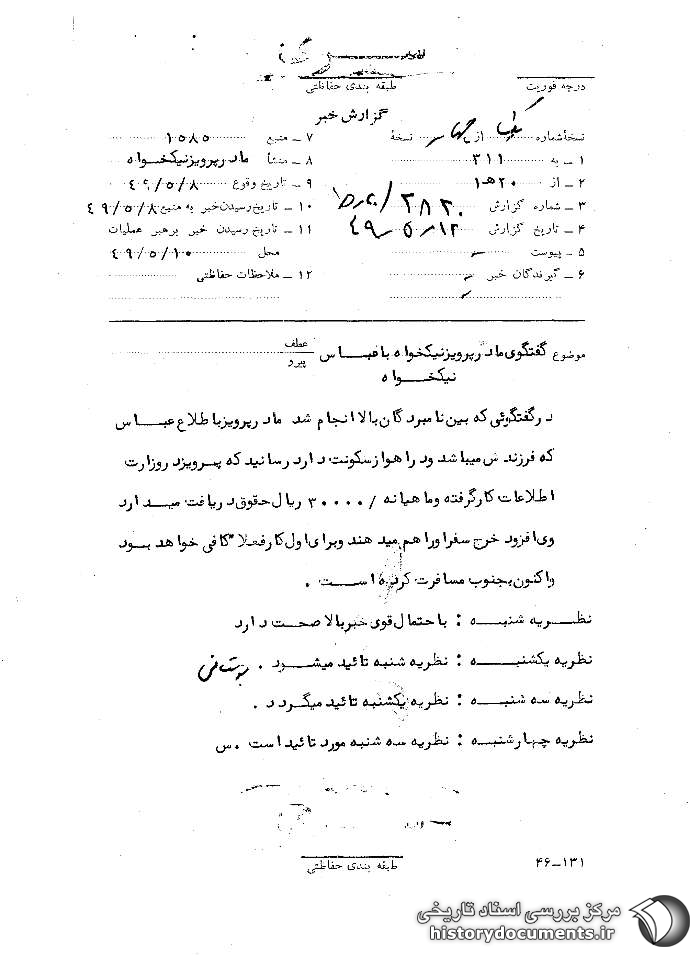 درجه فوریت
طبقه بندی حفاظتی
گزارش خبر
نسخه شماره یک از چهار نسخه
۱ ـ به ۳۱۱
۲ ـ از ۲۰ ه‍ ۱
۳ ـ شماره گزارش
۴ ـ تاریخ گزارش ۴۹/۵/۱۲
۵ ـ پیوست ـ
۶ ـ گیرندگان خبر ـ
۷ ـ منبع ۱۰۵۸۵
۸ ـ منشأ مادر پرویز نیکخواه
۹ ـ تاریخ وقوع ۴۹/۵/۸
۱۰ ـ تاریخ رسیدن خبر به منبع ۴۹/۵/۸
۱۱ ـ تاریخ رسیدن خبر برهبر عملیات
محل ۴۹/۵/۱۰
۱۲ ـ ملاحظات حفاظتی
موضوع گفتگوی مادر پرویز نیکخواه با عباس
نیکخواه
عطف
پیرو
در گفتگوئی که بین نامبردگان بالا انجام شد مادر پرویز باطلاع عباس
که فرزندش میباشد و در اهواز سکونت دارد رسانید که پرویز در وزارت
اطلاعات کار گرفته و ماهیانه /۳۰۰۰۰ ریال حقوق دریافت میدارد
وی افزود خرج سفر او را هم میدهند و برای اول کار فعلا" کافی خواهد بود
و اکنون بجنوب مسافرت کرده است .
نظریه شنبه : با احتمال قوی خبر بالا صحت دارد
نظریه یکشنبه : نظریه شنبه تائید میشود .
نظریه سه شنبه : نظریه یکشنبه تائید میگردد .
نظریه چهارشنبه : نظریه سه شنبه مورد تائید است . س
طبقه بندی حفاظتی
۴۶-۱۳۱
مرکز بررسی اسناد تاریخی
historydocuments.ir